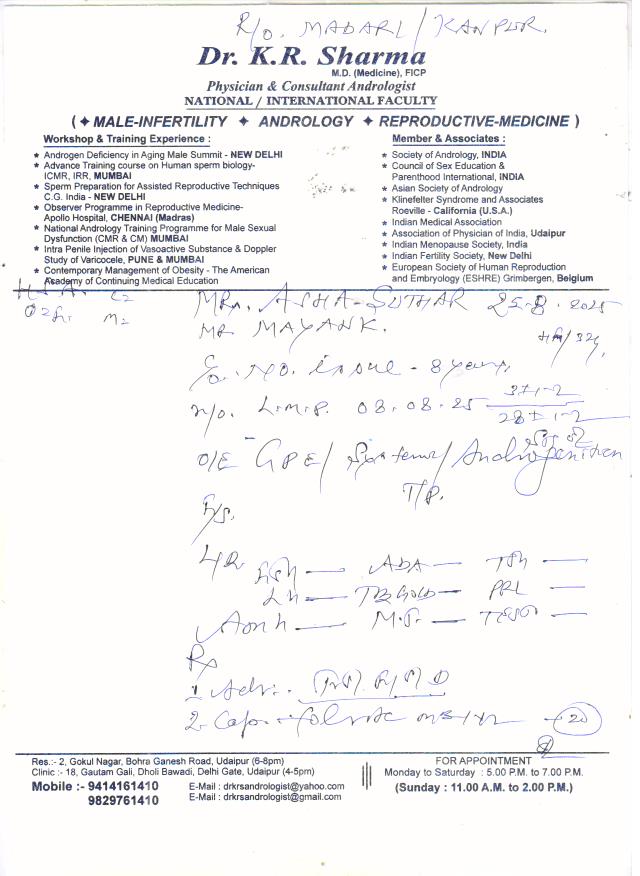 R/o. MADARI/KANPUR.
Dr. K.R. Sharma
M.D. (Medicine), FICP
Physician & Consultant Andrologist
NATIONAL / INTERNATIONAL FACULTY
( ✦ MALE-INFERTILITY ✦ ANDROLOGY ✦ REPRODUCTIVE-MEDICINE )
Workshop & Training Experience :
★ Androgen Deficiency in Aging Male Summit - NEW DELHI
★ Advance Training course on Human sperm biology-
ICMR, IRR, MUMBAI
★ Sperm Preparation for Assisted Reproductive Techniques
C.G. India - NEW DELHI
★ Observer Programme in Reproductive Medicine-
Apollo Hospital, CHENNAI (Madras)
★ National Andrology Training Programme for Male Sexual
Dysfunction (CMR & CM) MUMBAI
★ Intra Penile Injection of Vasoactive Substance & Doppler
Study of Varicocele, PUNE & MUMBAI
★ Contemporary Management of Obesity - The American
Academy of Continuing Medical Education
Member & Associates :
★ Society of Andrology, INDIA
★ Council of Sex Education &
Parenthood International, INDIA
★ Asian Society of Andrology
★ Klinefelter Syndrome and Associates
Roeville - California (U.S.A.)
★ Indian Medical Association
★ Association of Physician of India, Udaipur
★ Indian Menopause Society, India
★ Indian Fertility Society, New Delhi
★ European Society of Human Reproduction
and Embryology (ESHRE) Grimbergen, Belgium
MRs. ASHA-SUTHAR 25.8.2025
MR MAYANK.
C/o. No. issue - 8 years,
M/o. L.M.P. 08.08.25 3±1-2
28±1-2
O/E GPE/ Systems/
FSH — — TSH —
LH — TB Gold — PRL —
AMH — — TESTO —
Rx
1 Adv.
2 Cap. 20
Res.:- 2, Gokul Nagar, Bohra Ganesh Road, Udaipur (6-8pm)
Clinic :- 18, Gautam Gali, Dholi Bawadi, Delhi Gate, Udaipur (4-5pm)
Mobile :- 9414161410 E-Mail : drkrsandrologist@yahoo.com
9829761410 E-Mail : drkrsandrologist@gmail.com
FOR APPOINTMENT
Monday to Saturday : 5.00 P.M. to 7.00 P.M.
(Sunday : 11.00 A.M. to 2.00 P.M.)